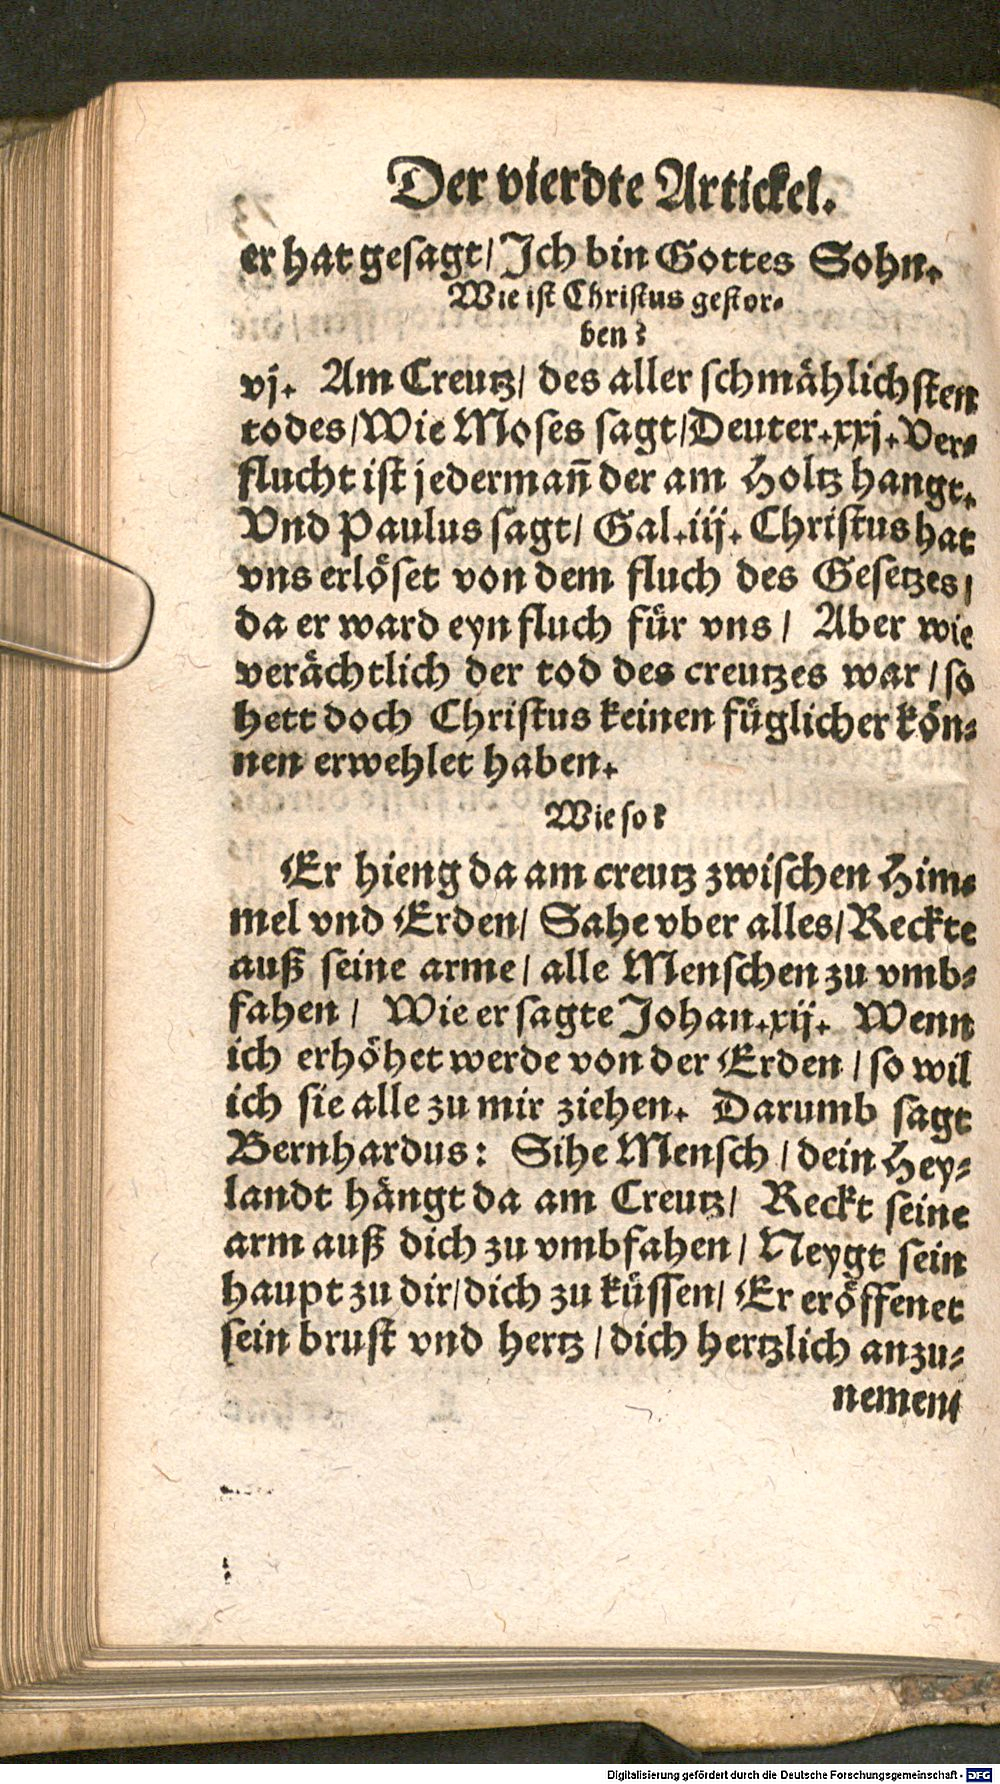 Der vierdte Artickel.
er hat gesagt/ Ich bin Gottes Sohn.
Wie ist Christus gestor-
ben?
vj. Am Creutz/ des aller schmählichsten
todes/ Wie Moses sagt/ Deuter. xxj. Ver-
flucht ist jedermañ der am Holtz hangt.
Vnd Paulus sagt/ Gal. iij. Christus hat
vns erlöset von dem fluch des Gesetzes/
da er ward eyn fluch für vns/ Aber wie
verächtlich der tod des creutzes war/ so
hett doch Christus keinen füglicher kön-
nen erwehlet haben.
Wie so?
Er hieng da am creutz zwischen Him-
mel vnd Erden/ Sahe vber alles/ Reckte
auß seine arme/ alle Menschen zu vmb-
fahen/ Wie er sagte Johan. xij. Wenn
ich erhöhet werde von der Erden/ so wil
ich sie alle zu mir ziehen. Darumb sagt
Bernhardus: Sihe Mensch/ dein Hey-
landt hängt da am Creutz/ Reckt seine
arm auß dich zu vmbfahen/ Neygt sein
haupt zu dir/ dich zu küssen/ Er eröffenet
sein brust vnd hertz/ dich hertzlich anzu-
nemen/
Digitalisierung gefördert durch die Deutsche Forschungsgemeinschaft - DFG